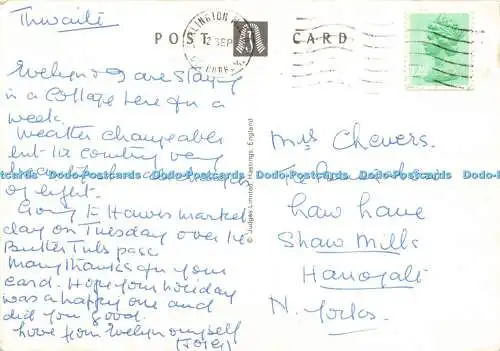 Thwaite
POST CARD
DARLINGTON
12 SEP
Evelyn & I are staying
in a cottage here for a
week.
Weather changeable
but the country very
beautiful
of light.
Going to Hawes market
day on Tuesday over the
Butter Tubs pass
Many thanks for your
card. Hope your holiday
was a happy one and
did you good.
Love from Evelyn & myself
(Joyce)
© Judges Limited, Hastings, England
Mrs Chevers.
Law Lane
Shaw Mills
Harrogate
N. Yorks.
Dodo-Postcards Dodo-Postcards Dodo-Postcards Dodo-Postcards Dodo-Postcards Dodo-Postcards